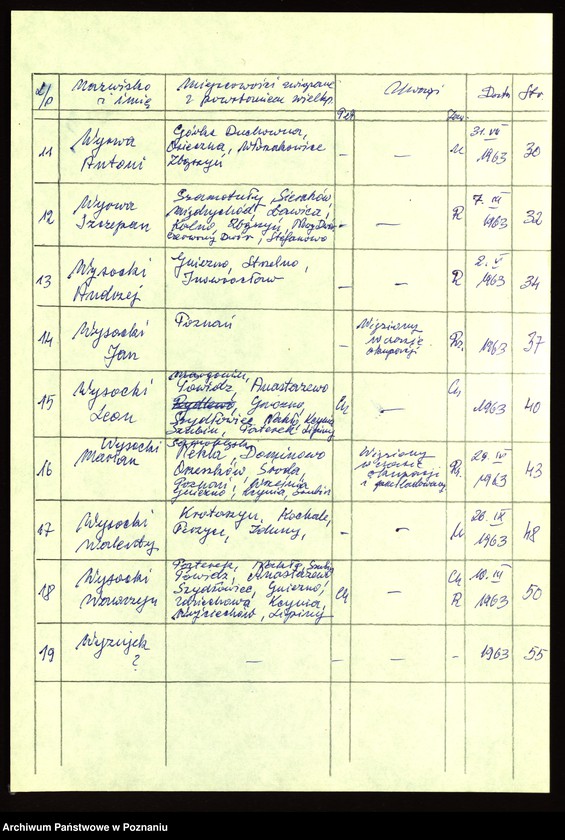 L/p Nazwisko i imię Miejscowości związane z powstaniem wielkp. Uwagi Data Str.
11 Wysowa Antoni
Górka Duchowna,
Osieczna, Włoszakowice
Zbąszyń
— — M 31.VII 1963 30
12 Wysowa Szczepan
Szamotuły, Sieraków,
Międzychód, Ławica,
Kolno, Zbąszyń, Nowy Dwór
Czerwony Dwór, Stefanowo
— R 7. III 1963 32
13 Wysocki Andrzej
Gniezno, Strzelno,
Inowrocław
— — R 2. V 1963 34
14 Wysocki Jan
Poznań
— Więziony
w czasie
okupacji
R. 1963 37
15 Wysocki Leon
Margonin,
Powidz, Anastazewo
Gniezno,
Szydłowiec, Nakło, Kcynia
Szubin, Paterek, Lipiny
Ch — Ch 1963 40
16 Wysocki Marian
Nekla, Dominowo
Orzeszków, Środa,
Poznań, Września
Gniezno, Kcynia, Szubin
Więziony
w czasie
okupacji
i prześladowany
R. 29. IV 1963 43
17 Wysocki Walenty
Krotoszyn, Kochale,
Zduny,
— — M 26. IX 1963 48
18 Wysocki Wawrzyn
Paterek, Nakło, Szubin
Powidz, Anastazewo
Szydłowiec, Gniezno,
Kcynia
Wojciechów, Lipiny
Ch — Ch R 10. III 1963 50
19 Wyzujek ?
— — — — 1963 55
Archiwum Państwowe w Poznaniu